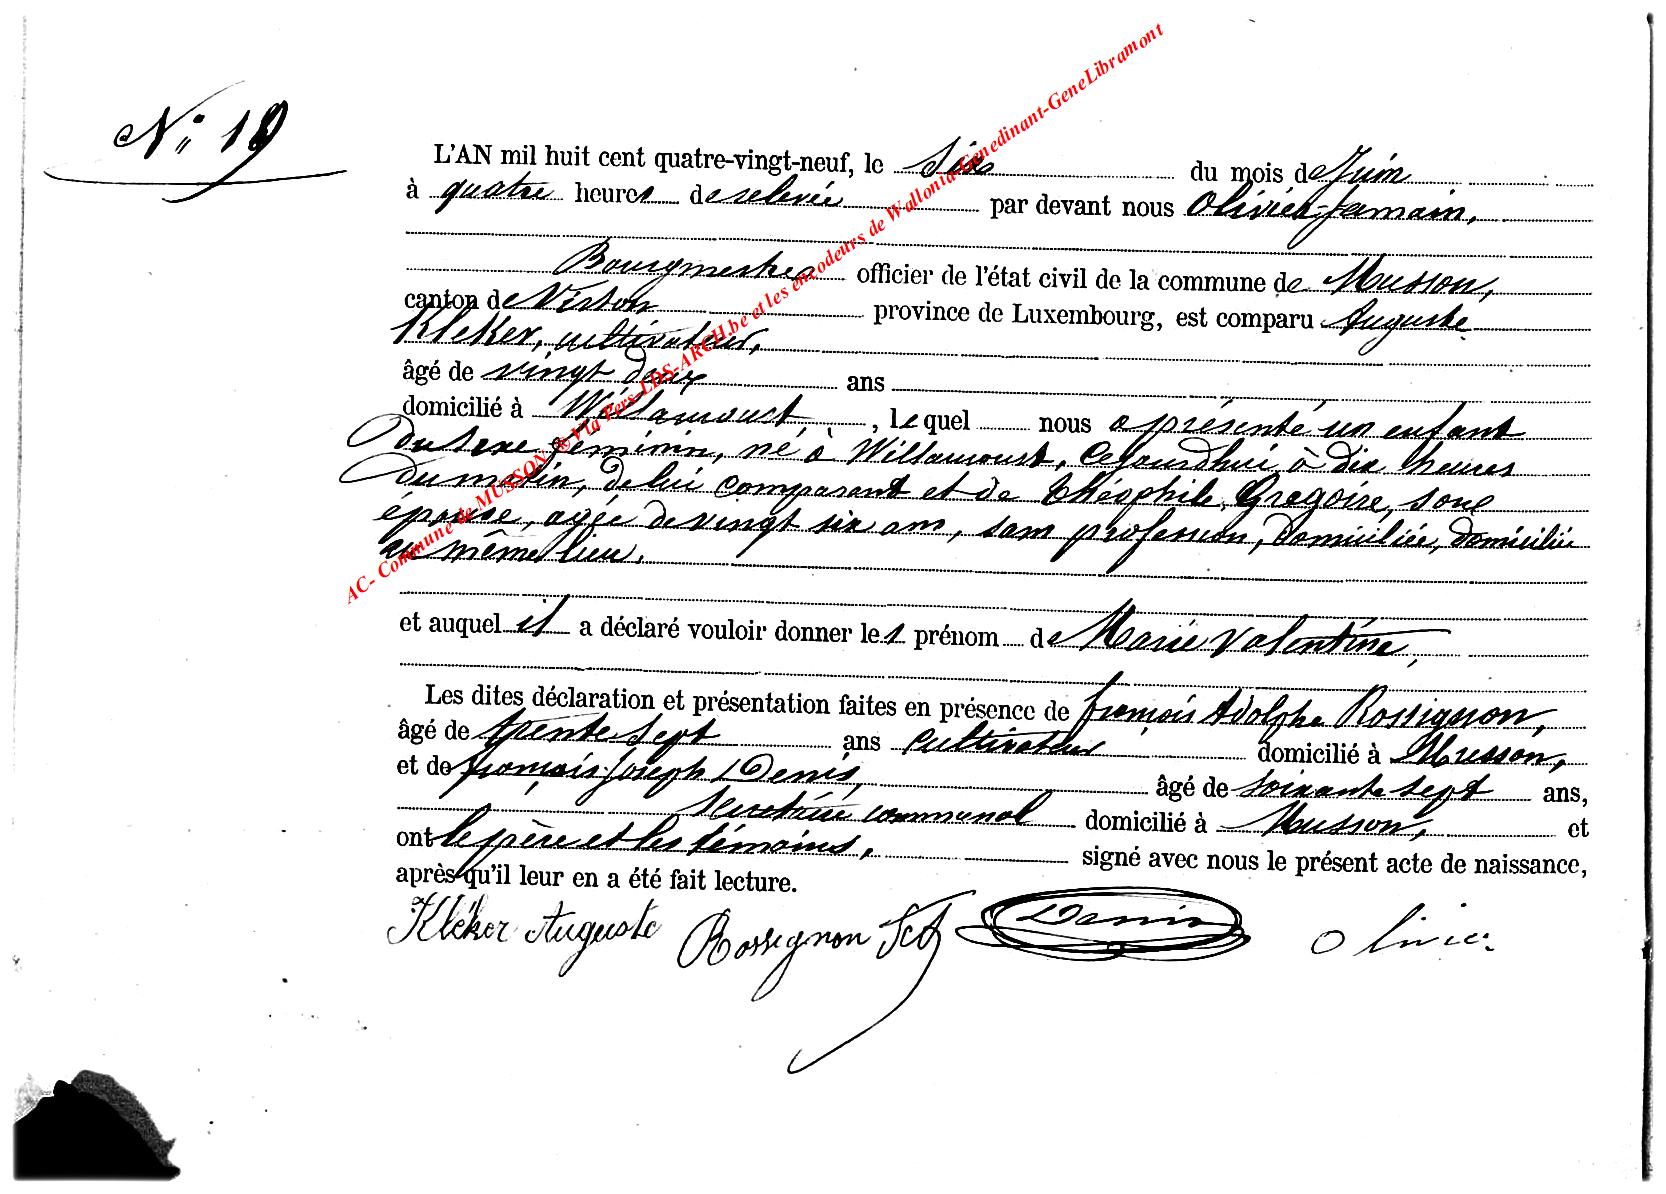 N° 19
L'AN mil huit cent quatre-vingt-neuf, le Six du mois de Juin
à quatre heures de relevée par devant nous Olivier Jamain,
Bourgmestre officier de l'état civil de la commune de Musson,
canton de Virton province de Luxembourg, est comparu Auguste
Kléker, cultivateur,
âgé de vingt deux ans
domicilié à Willancourt, lequel nous a présenté un enfant
du sexe féminin, né à Willancourt, Cejourdhui à dix heures
Du matin, de lui comparant et de Théophile Grégoire, son
épouse, agée de vingt six ans, sans profession, domiciliée, domiciliée
au même lieu.
et auquel il a déclaré vouloir donner les prénom de Marie Valentine,
Les dites déclaration et présentation faites en présence de françois Adolphe Rossignon,
âgé de trente sept ans cultivateur domicilié à Musson,
et de françois Joseph Denis, âgé de soixante sept ans,
secrétaire communal domicilié à Musson, et
ont le père et les témoins, signé avec nous le présent acte de naissance,
après qu'il leur en a été fait lecture.
Kléker Auguste Rossignon Denis Olivier
AC- Commune de MUSSON ® Via Pers-LDS-ARCH.be et les encodeurs de Wallonia-Genedinant-GeneLibramont